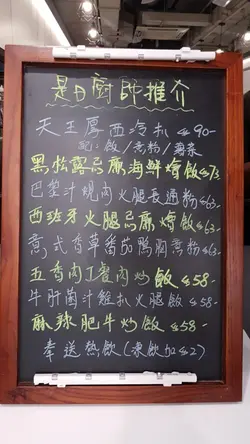 是日廚師推介
天王厚西冷扒 $90-
配:飯/意粉/薯菜
黑松露忌廉海鮮燴飯 $73
巴墊汁燒肉火腿長通粉 $63-
西班牙火腿忌廉燴飯 $63-
意式香草番茄鴨胸意粉 $63-
五香肉丁蟹肉炒飯 $58-
牛肝菌汁雞扒火腿飯 $58-
麻辣肥牛炒飯 $58-
奉送熱飲(凍飲加$2)